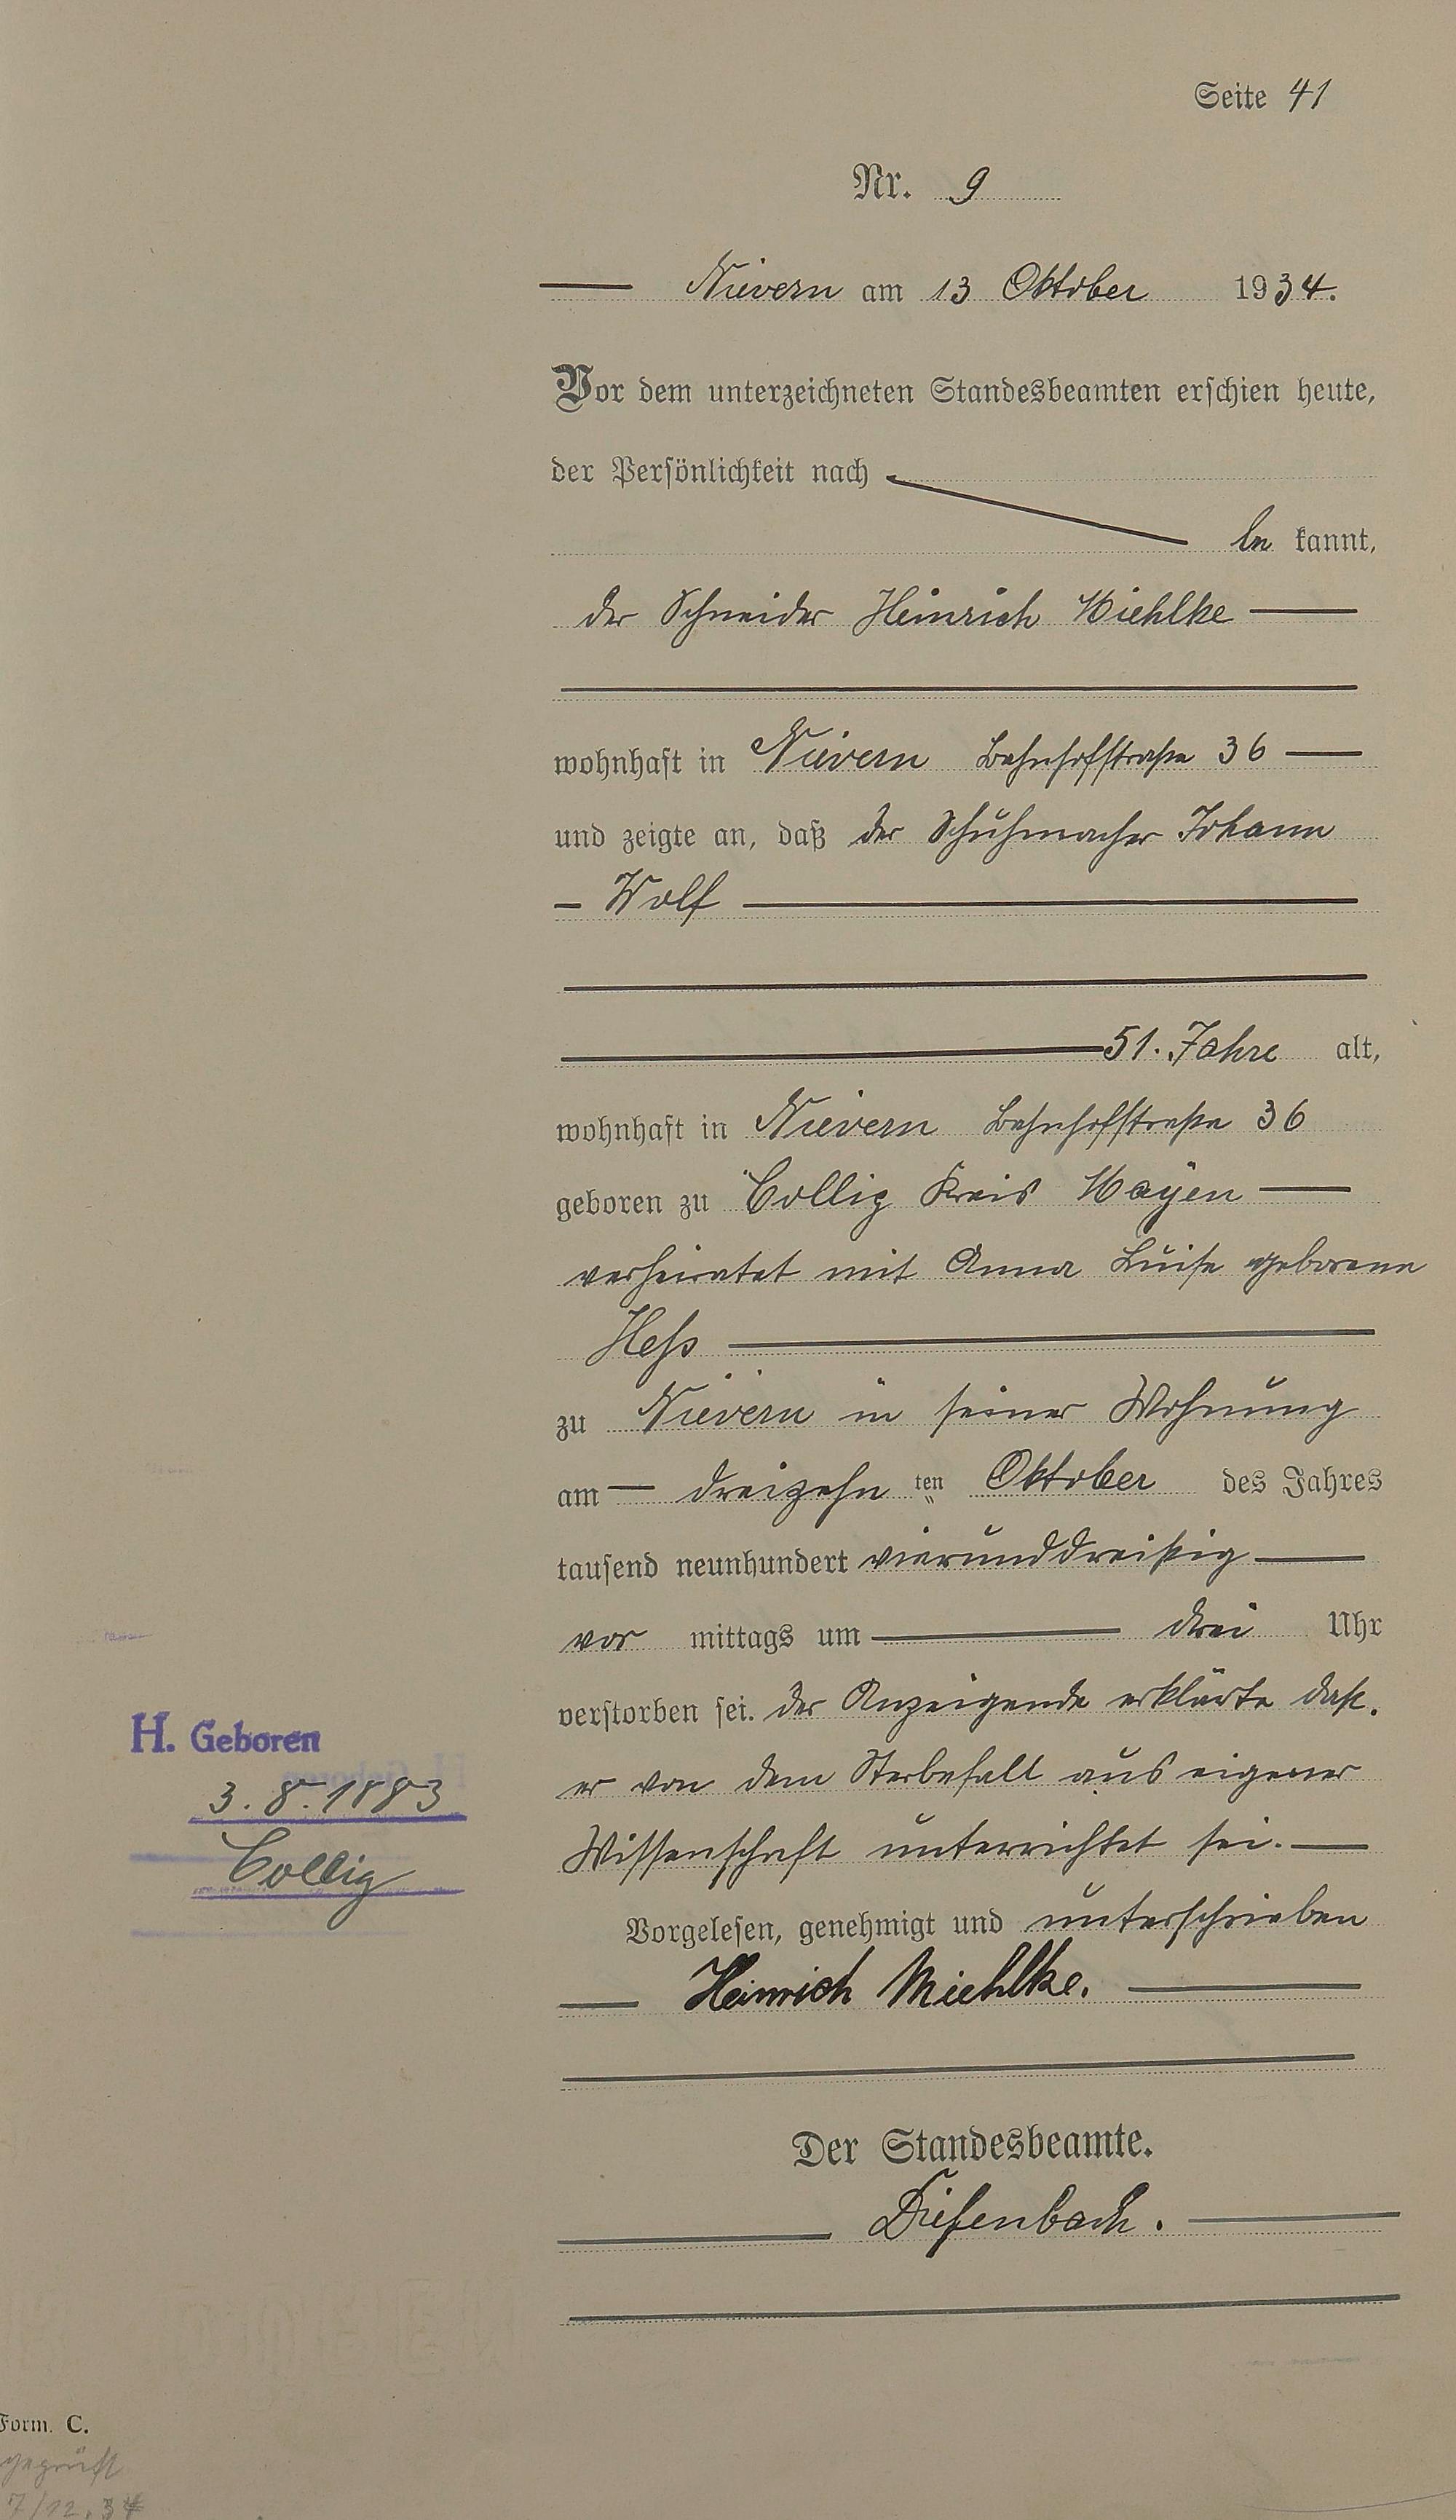 Seite 41
Nr. 9
Nievern am 13 Oktober 1934.
Vor dem unterzeichneten Standesbeamten erschien heute,
der Persönlichkeit nach
be kannt,
der Schneider Heinrich Miehlke
wohnhaft in Nievern Bahnhofstraße 36
und zeigte an, daß der Schuhmacher Johann
Wolf
51. Jahre alt,
wohnhaft in Nievern Bahnhofstraße 36
geboren zu Collig Kreis Mayen
verheiratet mit Anna Luise geborene
Heß
zu Nievern in seiner Wohnung
am dreizehn ten Oktober des Jahres
tausend neunhundert vierunddreißig
vor mittags um drei Uhr
verstorben sei. der Anzeigende erklärte daß.
er von dem Sterbefall aus eigener
Wissenschaft unterrichtet sei.
Vorgelesen, genehmigt und unterschrieben
Heinrich Miehlke.
Der Standesbeamte.
Diefenbach.
H. Geboren
3. 8. 1883
Collig
Form. C.
geprüft
7/12. 34